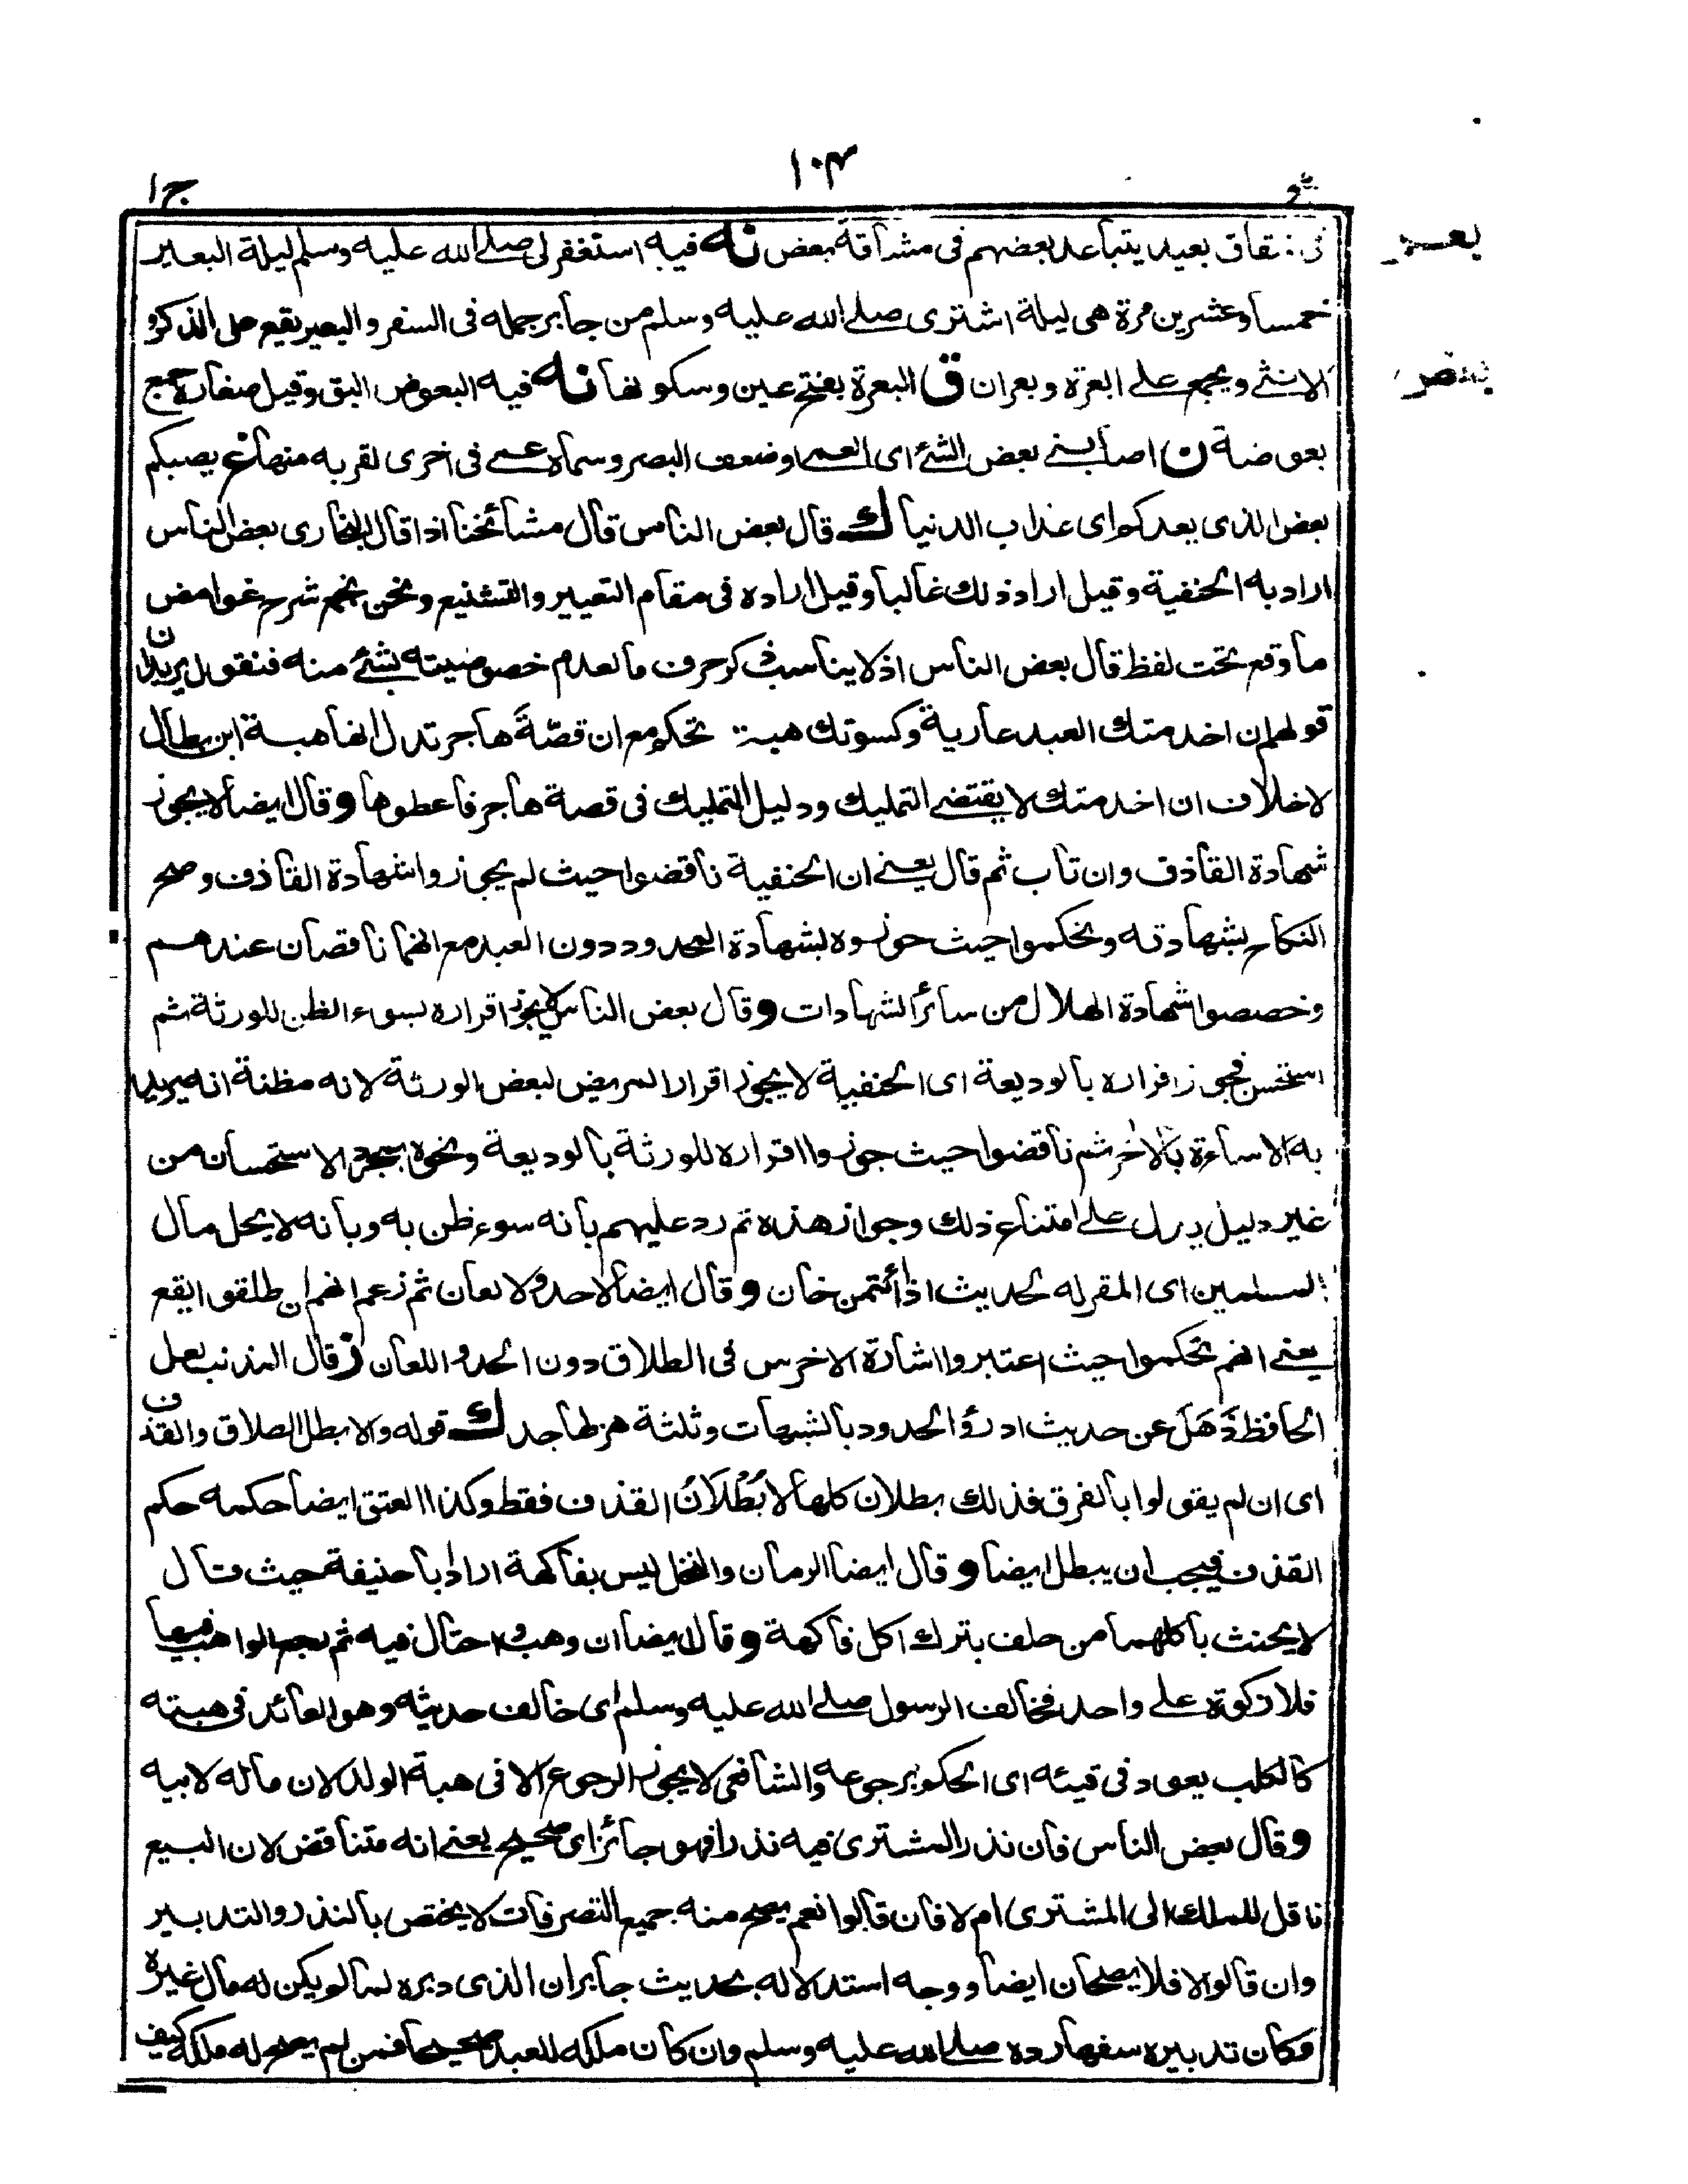 ١٠٤
ج ١
في شقاق بعيد يتباعد بعضهم في مشاقة بعض نه فيه استغفر لى صلى الله عليه وسلم ليلة البعير
بعر
خمسا وعشرين مرة هى ليلة اشترى صلى الله عليه وسلم من جابر جمله فى السفر والبعير يقع على الذكر و
الانثى ويجمع على ابعرة وبعران ق البعرة بفتح عين وسكونها نه فيه البعوض البق وقيل صغاره جمع
بعض
بعوضة ن اصابنى بعض الشئ اى العمى او ضعف البصر وسماه عمى فى اخرى لقربه منها غ يصبكم
بعض الذى يعدكم اى عذاب الدنيا ك قال بعض الناس قال مشائخنا اذا قال البخارى بعض الناس
اراد به الحنفية وقيل اراد ذلك غالبا وقيل اراده فى مقام التعيير والتشنيع ونحن نجمع شرح غوامض
ما وقع تحت لفظ قال بعض الناس اذ لا يناسب ذكر حرف ما لعدم خصوصيته بشئ منه فنقول يريد ان
قولهم ان اخدمتك العبد عارية وكسوتك هبة تحكم مع ان قصّةَ هاجر تدل انها هبة ابن بطال
لا خلاف ان اخدمتك لا يقتضى التمليك ودليل التمليك فى قصة هاجر فاعطوها و قال ايضا لا يجوز
شهادة القاذف وان تاب ثم قال يعنى ان الحنفية ناقضوا حيث لم يجيزوا شهادة القاذف وصح
النكاح بشهادته وتحكموا حيث جوزوه بشهادة المحدود دون العبد مع انهما ناقصان عندهم
وخصصوا شهادة الهلال من سائر الشهادات و قال بعض الناس لا يجوز اقراره بسوء الظن للورثة ثم
استحسن فجوز اقراره بالوديعة اى الحنفية لا يجوز اقرار المريض لبعض الورثة لانه مظنة انه يريد
به الاساءة بالاخر ثم ناقضوا حيث جوزوا اقراره للورثة بالوديعة ونحوه بمجرد الاستحسان من
غير دليل يدل على امتناع ذلك وجواز هذه ثم رد عليهم بانه سوء ظن به وبانه لا يحل مال
المسلمين اى المقر له لحديث اذا ائتمن خان و قال ايضا لا حد ولا لعان ثم زعم انهم ان طلقوا يقع
يعنى انهم تحكموا حيث اعتبروا اشارة الاخرس فى الطلاق دون الحد و اللعان ز قال المذنب لعل
الحافظ ذَهَلَ عن حديث ادرؤ الحدود بالشبهات وثلثة هزلها جد ك قوله والا بطل الطلاق والقذف
اى ان لم يقولوا بالفرق فذلك بطلان كلها لا بُطْلَانُ القذف فقط وكذا العتق ايضا حكمه حكم
القذف فيجب ان يبطل ايضا و قال ايضا الرمان والنخل ليس بفاكهة اراد ابا حنيفة حيث قال
لا يحنث باكلهما من حلف بترك اكل فاكهة و قال ايضا ان وهب و احتال فيه ثم رجع الواهب فيها
فلا زكوة على واحد فخالف الرسول صلى الله عليه وسلم اى خالف حديثه وهو العائد فى هبته
كالكلب يعود فى قيئه اى الحكم برجوعه والشافعى لا يجوز الرجوع الا فى هبة الولد لان ماله لابيه
و قال بعض الناس فان نذر المشترى فيه نذرا فهو جائز اى صحيح يعنى انه متناقض لان البيع
ناقل للملك الى المشترى ام لا فان قالوا نعم يصح منه جميع التصرفات لا يختص بالنذر والتدبير
وان قالوا لا فلا يصحان ايضا ووجه استدلاله بحديث جابر ان الذى دبره لما لم يكن له مال غيره
وكان تدبيره سفها رده صلى الله عليه وسلم وان كان ملكه للعبد صحيحا فمن لم يصح له ملكه كيف